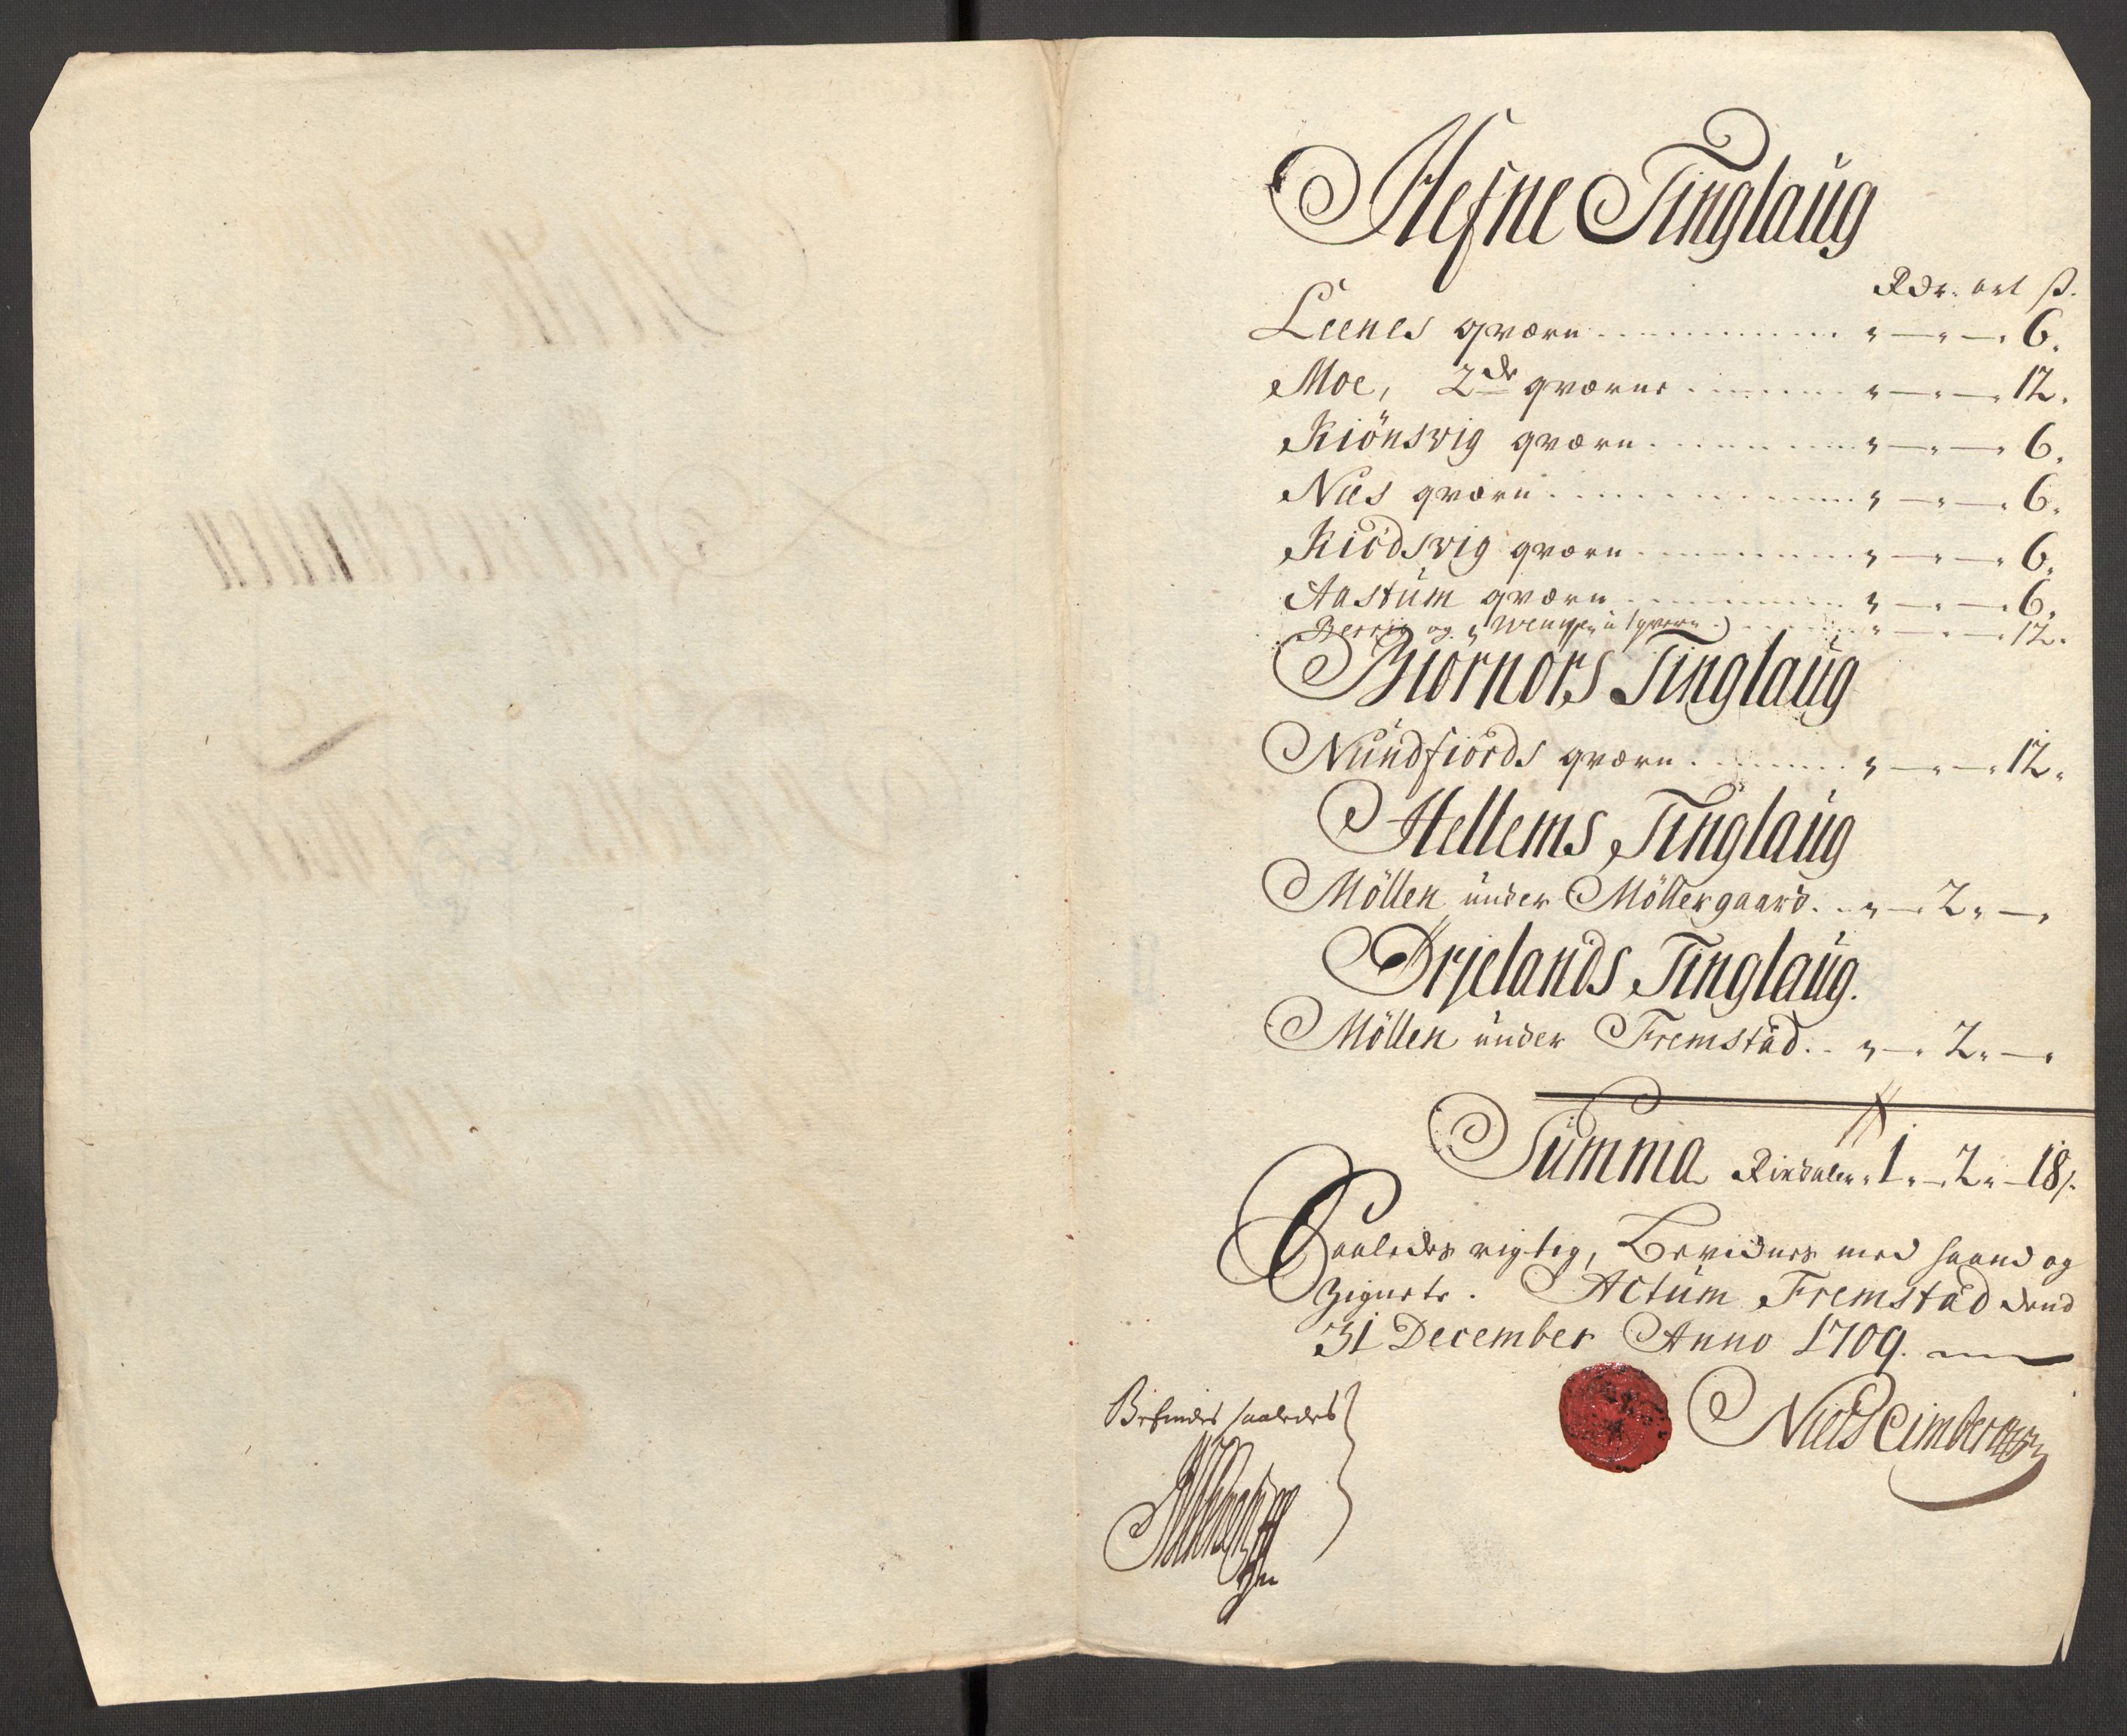 Hefne Tinglaüg
Rdr. ort ß.
Leenes qværn . . . . . . . . „ — „ — „ 6.
Moe, 2de qværne . . . . . . „ — „ — „ 12.
Kiönsvig qværn . . . . . . . „ — „ — „ 6.
Næs qværn . . . . . . . . . „ — „ — „ 6.
Kiödsvig qværn . . . . . . . „ — „ — „ 6.
Aastüm qværn . . . . . . . „ — „ — „ 6.
og . . . . . . „ — „ — „ 12.
Biornörs Tinglaüg
Nündfiords qværn . . . . . . „ — „ — „ 12.
Hellems Tinglaüg
Möllen ünder Möllergaard . . „ — „ 2 „ — „
Ørjelands Tinglaüg.
Möllen ünder Fremstad . . „ — „ 2 „ — „
Sümma Rixdaler „ 1 „ — 2 „ — 18 ß.
Saaledes rigtig, Bevidner med haand og
Zignete. Actüm Fremstad dend
31 December Anno 1709.
Befindes saaledes
Niels Cimber